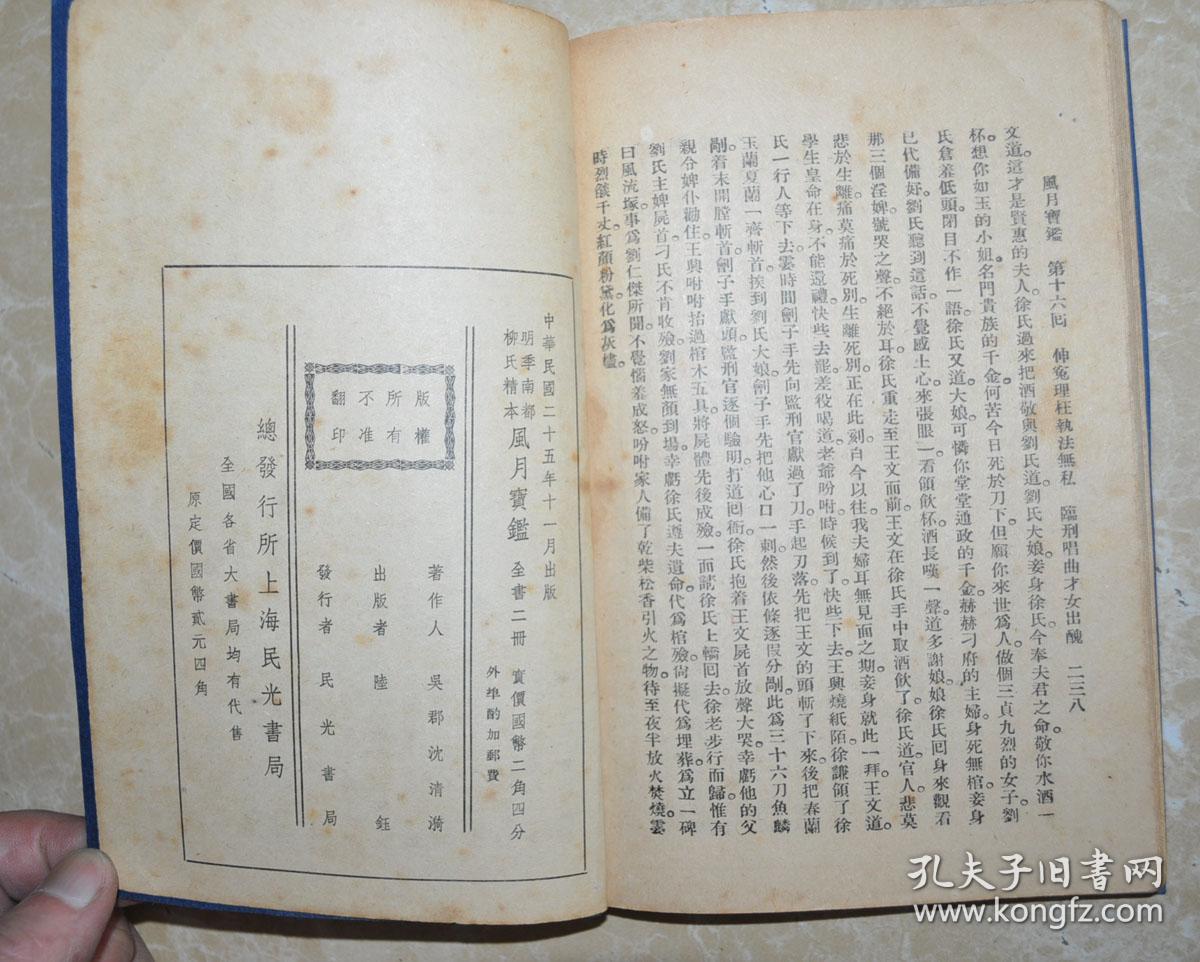 風月寶鑑　第十六囘　伸寃理枉執法無私　臨刑唱曲才女出醜　二三八
文道。這才是賢惠的夫人。徐氏過來把酒敬與劉氏道。劉氏大娘。妾身徐氏。今奉夫君之命。敬你水酒一
杯。想你如玉的小姐。名門貴族的千金。何苦今日死於刀下。但願你來世爲人。做個三貞九烈的女子。劉
氏含羞低頭。閉目不作一語。徐氏又道。大娘。可憐你堂堂通政的千金。赫赫刁府的主婦。身死無棺。妾身
已代備好。劉氏聽到這話。不覺感上心來。張眼一看。領飲杯酒。長嘆一聲道。多謝娘娘。徐氏囘身來觀看
那三個淫婢。號哭之聲。不絕於耳。徐氏重走至王文面前。王文在徐氏手中取酒飲了。徐氏道。官人。悲莫
悲於生離。痛莫痛於死別。生離死別。正在此刻。自今以往。我夫婦耳無見面之期。妾身就此一拜。王文道。
學生皇命在身。不能還禮。快些去罷。差役喝道。老爺吩咐。時候到了。快些下去。王興燒紙陌。徐謙領了徐
氏一行人等下去。霎時間劊子手先向監刑官獻過了刀。手起刀落。先把王文的頭斬了下來。後把春蘭
玉蘭夏蘭一齊斬首。挨到劉氏大娘。劊子手先把他心口一刺。然後依條逐段分剮。此爲三十六刀魚鱗
剮。着末開膛斬首。劊子手獻頭。監刑官逐個驗明。打道囘衙。徐氏抱着王文屍首。放聲大哭。幸虧他的父
親令婢仆勸住。王興咐咐抬過棺木五具。將屍體先後成殮。一面請徐氏上轎囘去。徐老步行而歸。惟有
劉氏主婢屍首。刁氏不肯收殮。劉家無顏到場。幸虧徐氏遵夫遺命。代爲棺殮。尙擬代爲埋葬。爲立一碑。
曰風流塚。事爲劉仁傑所聞。不覺惱羞成怒。吩咐家人備了乾柴松香引火之物。待至夜半。放火焚燒。霎
時烈燄千丈。紅顏粉黛。化爲灰燼。
中華民國二十五年十一月出版
明季南都
柳氏精本
風月寶鑑
全書二冊　實價國幣二角四分
外埠酌加郵費
著作人　吳郡沈清漪
出版者　陸鈺
發行者　民光書局
版權
所有
不准
翻印
總發行所上海民光書局
全國各省大書局均有代售
原定價國幣貳元四角
孔夫子旧书网
www.kongfz.com